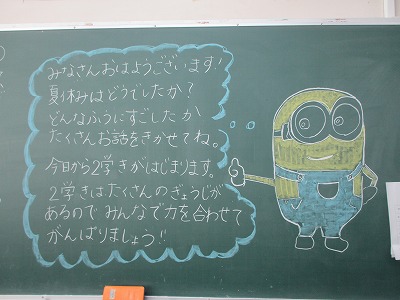 みなさんおはようございます!
夏休みはどうでしたか?
どんなふうにすごしたか
たくさんお話をきかせてね。
今日から2学きがはじまります。
2学きはたくさんのぎょうじが
あるので みんなで力を合わせて
がんばりましょう!!